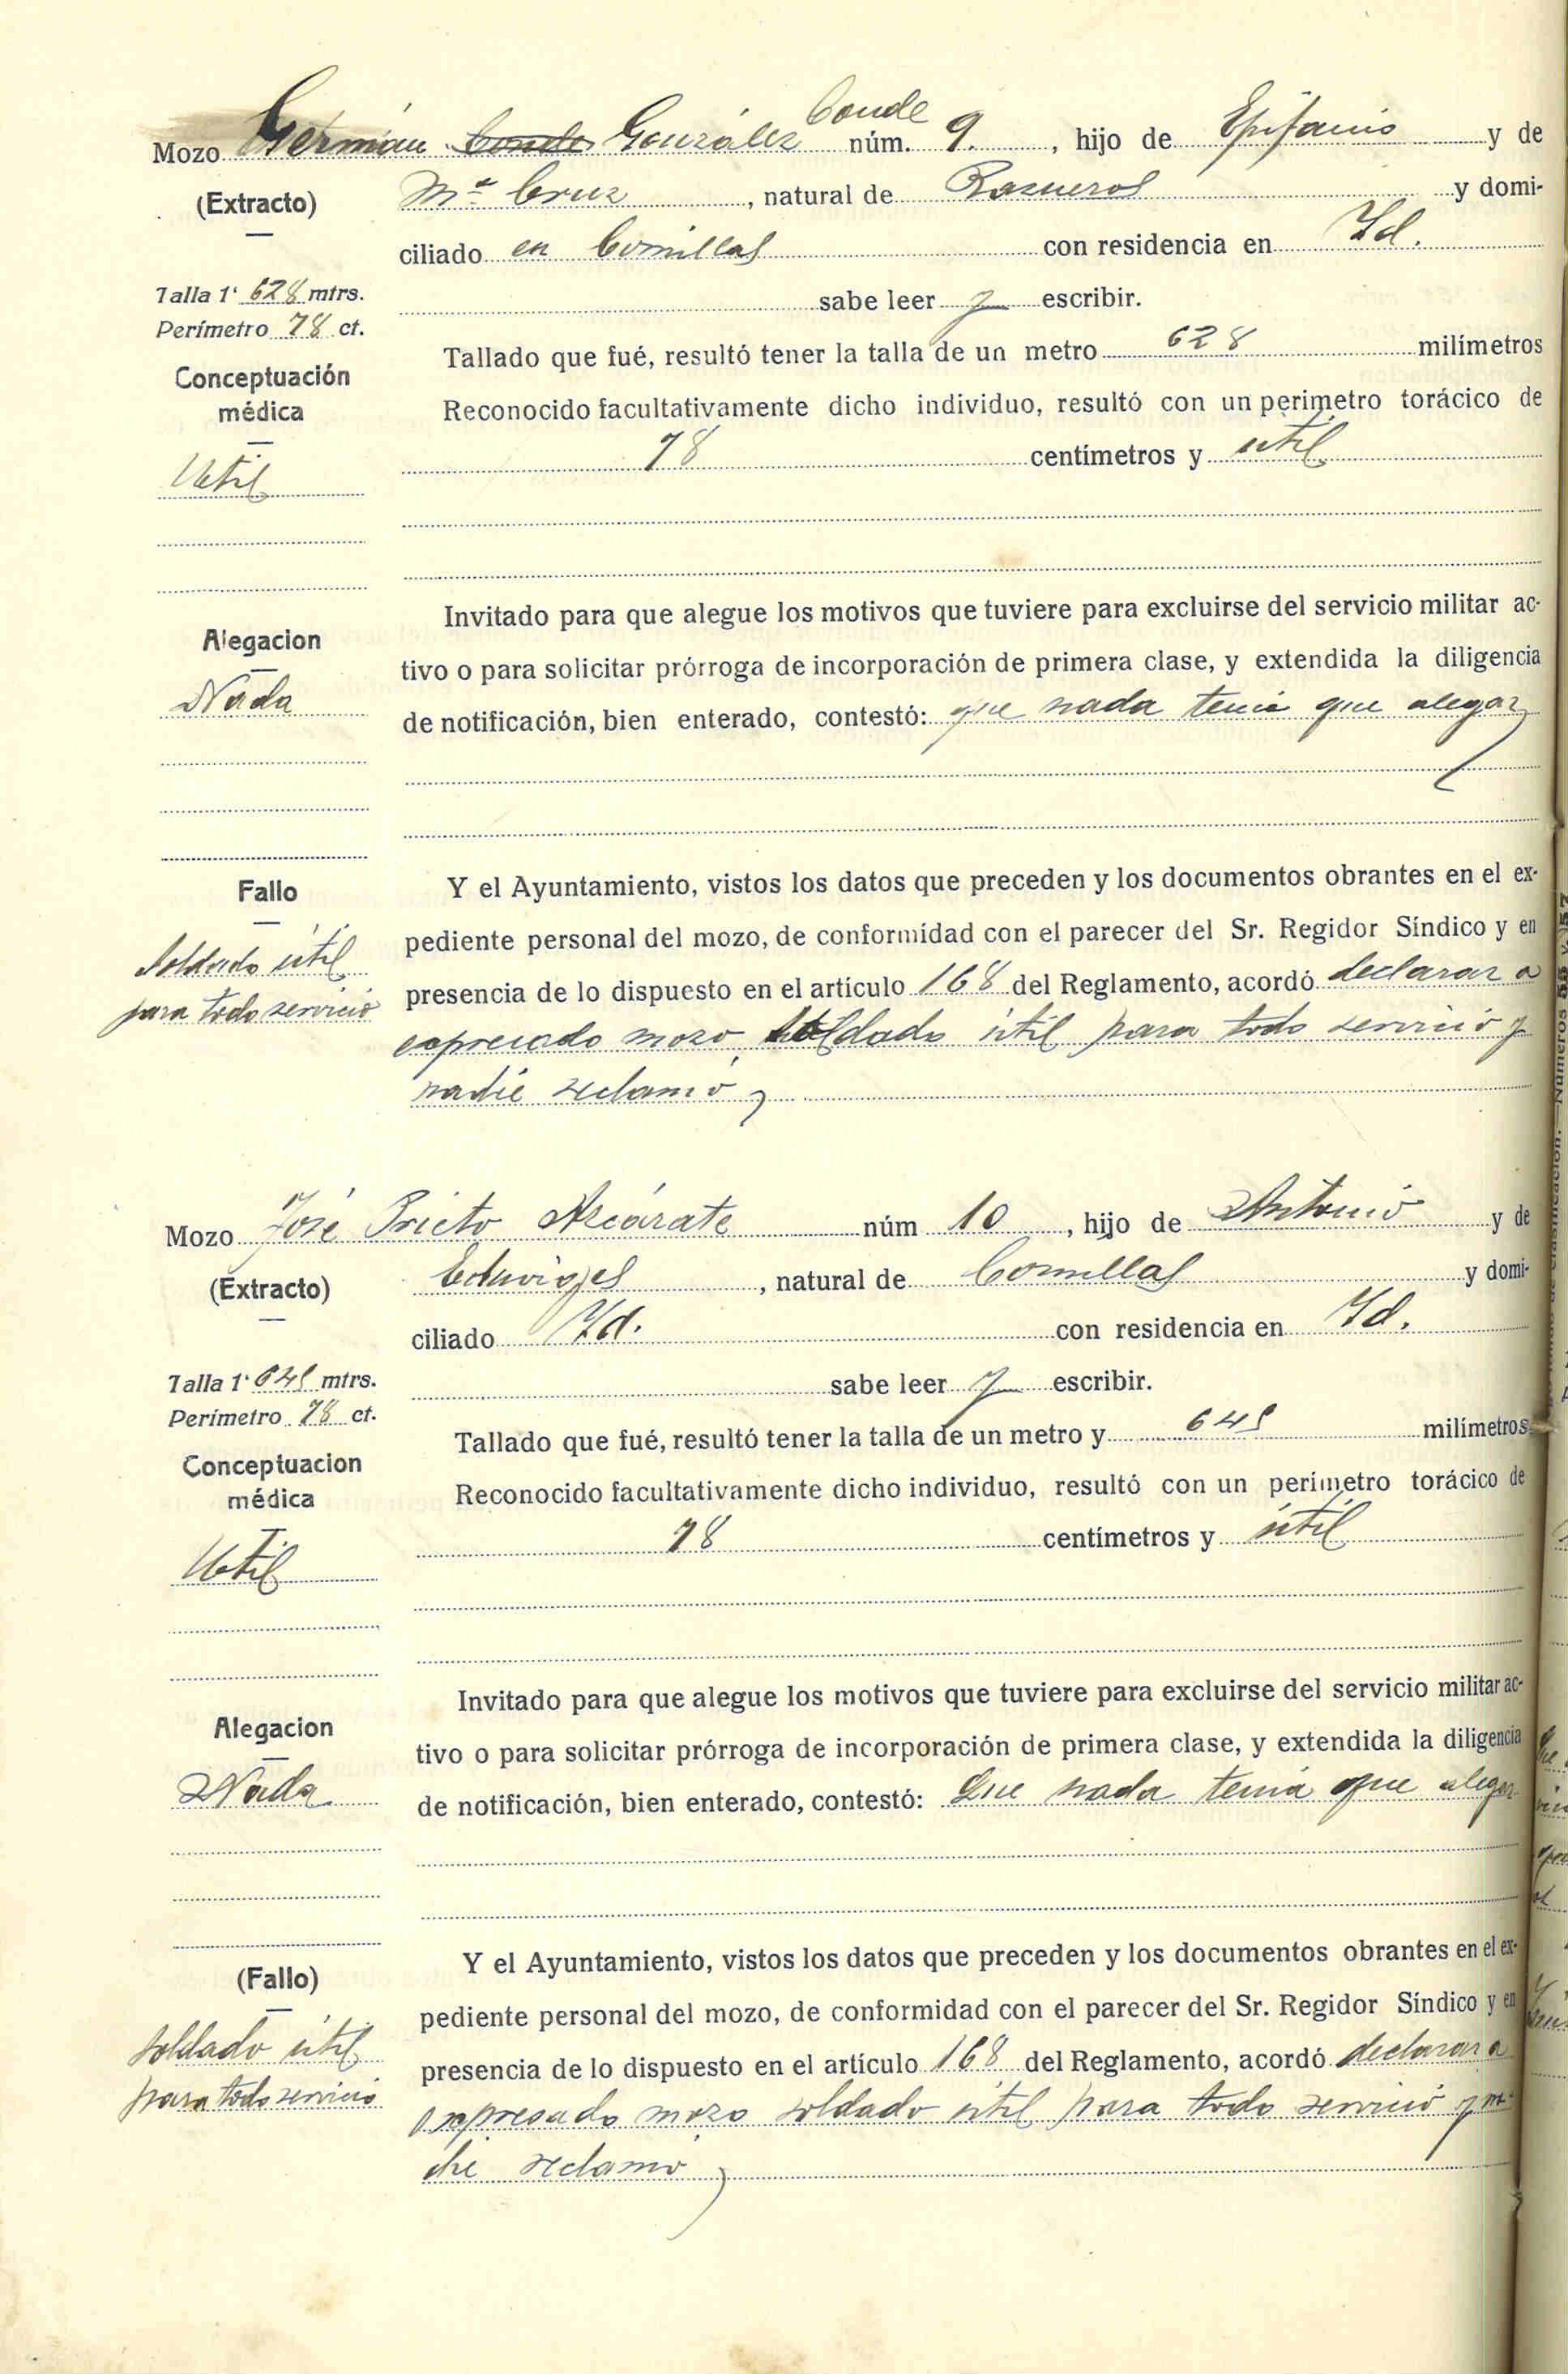 Mozo Germán Conde González Conde núm. 9. , hijo de Epifanio y de
(Extracto)
Mª Cruz , natural de Rasueros y domi-
ciliado en Comillas con residencia en Id.
Talla 1' 628 mtrs.
sabe leer y escribir.
Perímetro 78 ct.
Tallado que fué, resultó tener la talla de un metro 628 milímetros
Conceptuación
médica
Reconocido facultativamente dicho individuo, resultó con un perimetro torácico de
78 centímetros y útil
Util
Invitado para que alegue los motivos que tuviere para excluirse del servicio militar ac-
Alegacion
tivo o para solicitar prórroga de incorporación de primera clase, y extendida la diligencia
Nada
de notificación, bien enterado, contestó: que nada tenia que alegar
Fallo
Y el Ayuntamiento, vistos los datos que preceden y los documentos obrantes en el ex-
pediente personal del mozo, de conformidad con el parecer del Sr. Regidor Síndico y en
Soldado útil
presencia de lo dispuesto en el artículo 168 del Reglamento, acordó declarar a
para todo servicio
expresado mozo soldado útil para todo servicio y
nadie reclamó
Mozo José Prieto Azcárate núm 10 , hijo de Antonio y de
(Extracto)
Eduviges , natural de Comillas y domi-
ciliado Id. con residencia en Id.
Talla 1' 645 mtrs.
sabe leer y escribir.
Perímetro 78 ct.
Tallado que fué, resultó tener la talla de un metro y 645 milímetros
Conceptuacion
médica
Reconocido facultativamente dicho individuo, resultó con un perímetro torácico de
78 centímetros y útil
Util
Invitado para que alegue los motivos que tuviere para excluirse del servicio militar ac-
Alegacion
tivo o para solicitar prórroga de incorporación de primera clase, y extendida la diligencia
Nada
de notificación, bien enterado, contestó: Que nada tenia que alegar
(Fallo)
Y el Ayuntamiento, vistos los datos que preceden y los documentos obrantes en el ex-
pediente personal del mozo, de conformidad con el parecer del Sr. Regidor Síndico y en
soldado útil
presencia de lo dispuesto en el artículo 168 del Reglamento, acordó declarar a
para todo servicio
expresado mozo soldado útil para todo servicio y na-
die reclamó